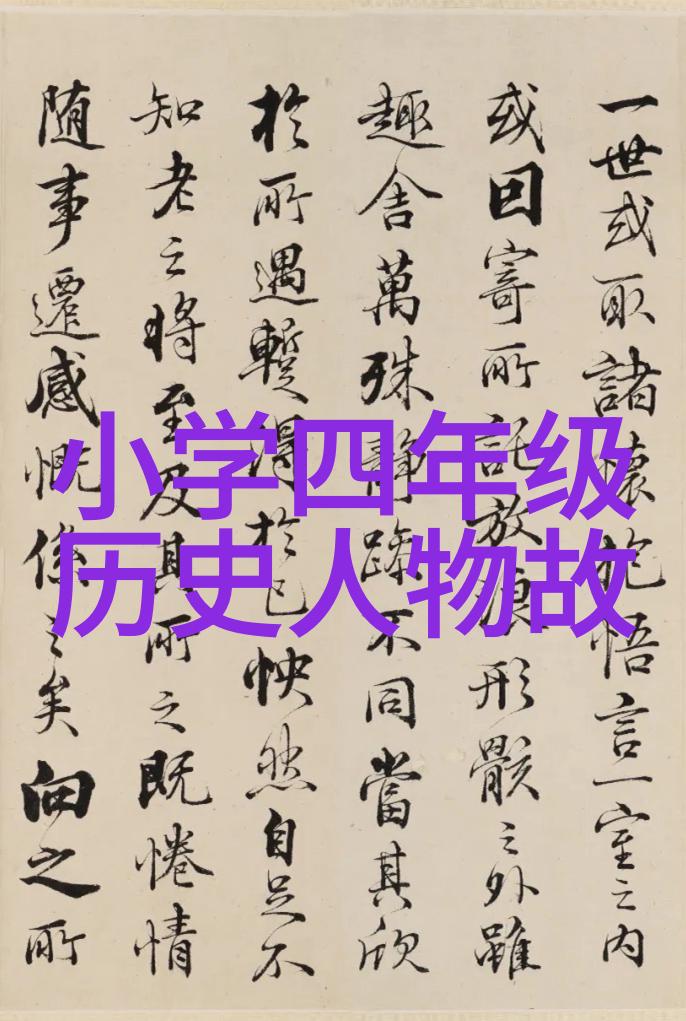 小学四年级
历史人物故
一世或取諸懷抱悟言一室之內
或因寄所託放浪形骸之外雖
趣舍萬殊靜躁不同當其欣
於所遇蹔得於己怏然自足不
知老之將至及其所之既惓情
随事遷感慨係之矣向之所